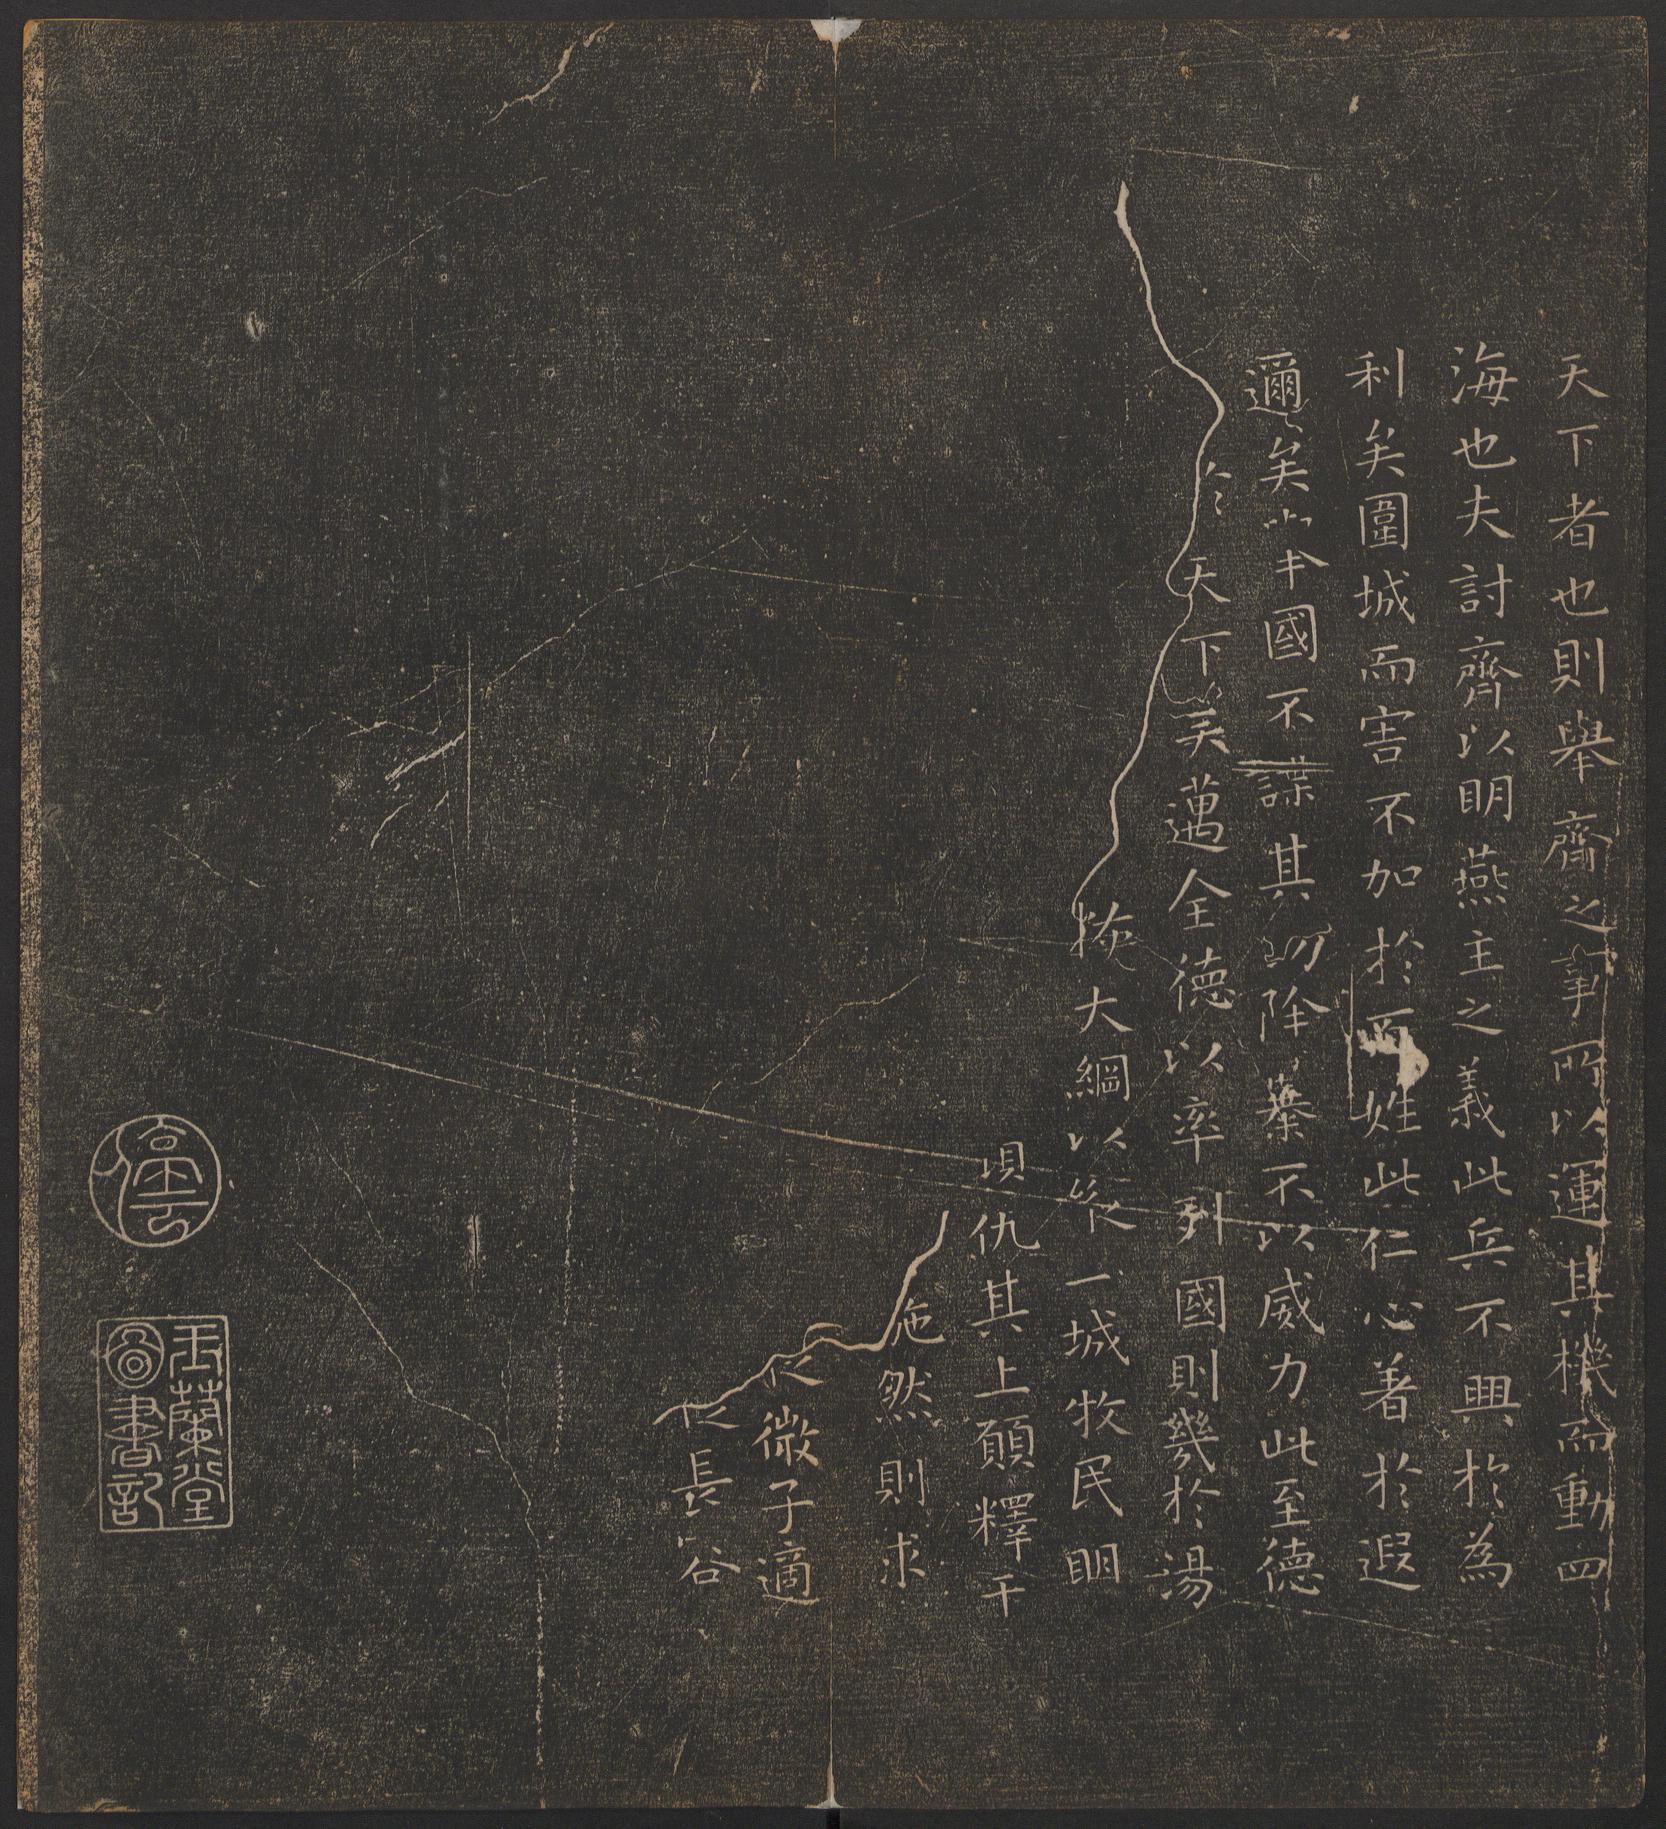 天下者也則舉齊之事所以運其機而動四
海也夫討齊以明燕主之義此兵不興於為
利矣圍城而害不加於百姓此仁心著於遐
邇矣舉國不謀其功除暴不以威力此至德
於天下矣邁全德以率列國則幾於湯
大綱以一城牧民明
仇其上願釋干
然則求
微子適
長谷
停雲
玉蘭堂
圖書記